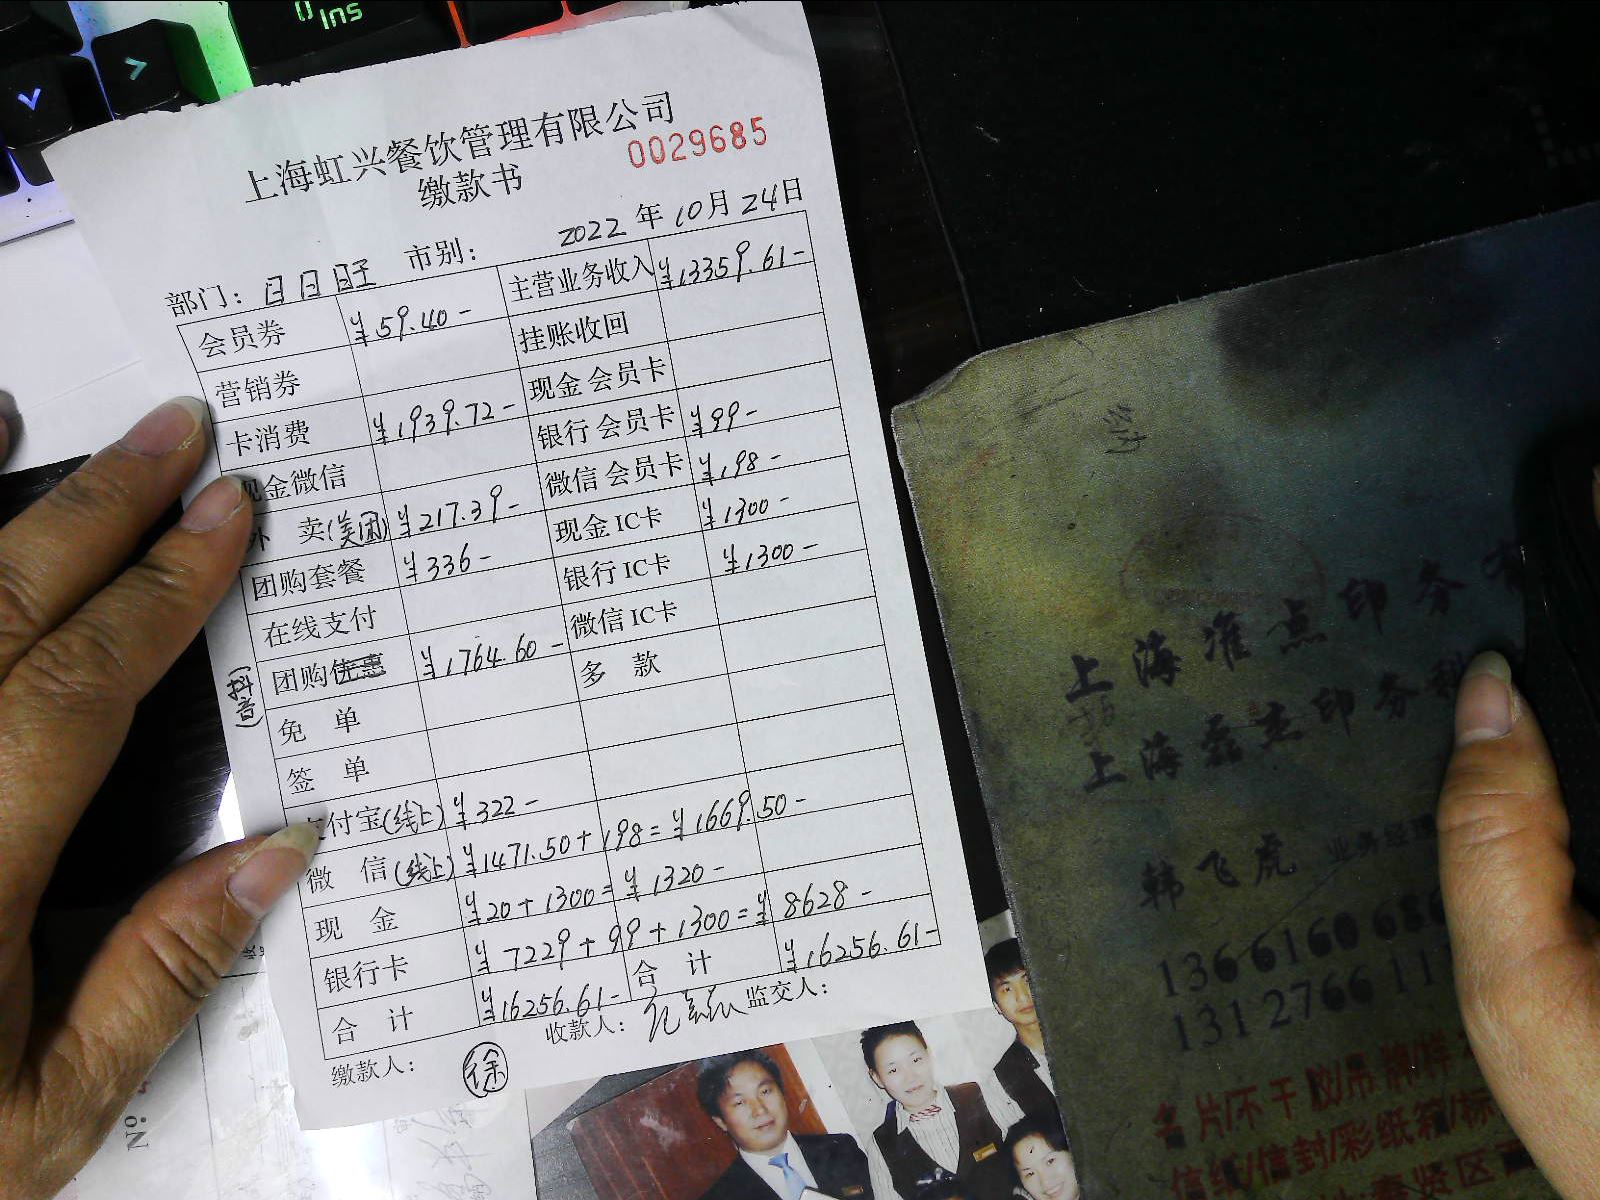 Ins
上海虹兴餐饮管理有限公司
0029685
缴款书
2022 年 10月 24日
部门: 日日旺 市别:
会员券 ¥59.40- 主营业务收入 ¥13359.61-
营销券 挂账收回
卡消费 ¥1939.72- 现金会员卡
现金微信 银行会员卡 ¥99-
外 卖(美团) ¥217.39- 微信会员卡 ¥198-
团购套餐 ¥336- 现金IC卡 ¥1300-
在线支付 银行IC卡 ¥1300-
团购优惠 ¥1764.60- 微信IC卡
(抖音)
免 单 多 款
签 单
支付宝(线上) ¥322-
微 信(线上) ¥1471.50+198=¥1669.50-
现 金 ¥20+1300=¥1320-
银行卡 ¥7229+99+1300=¥8628-
合 计 ¥16256.61- 合 计 ¥16256.61-
缴款人: 徐 收款人: 监交人:
No:
上海准点印务有
上海磊杰印务
韩飞虎 业务经理
136 6160 68
131 2766 11
名片/不干胶/吊牌/样
信纸/信封/彩纸箱/标
奉贤区